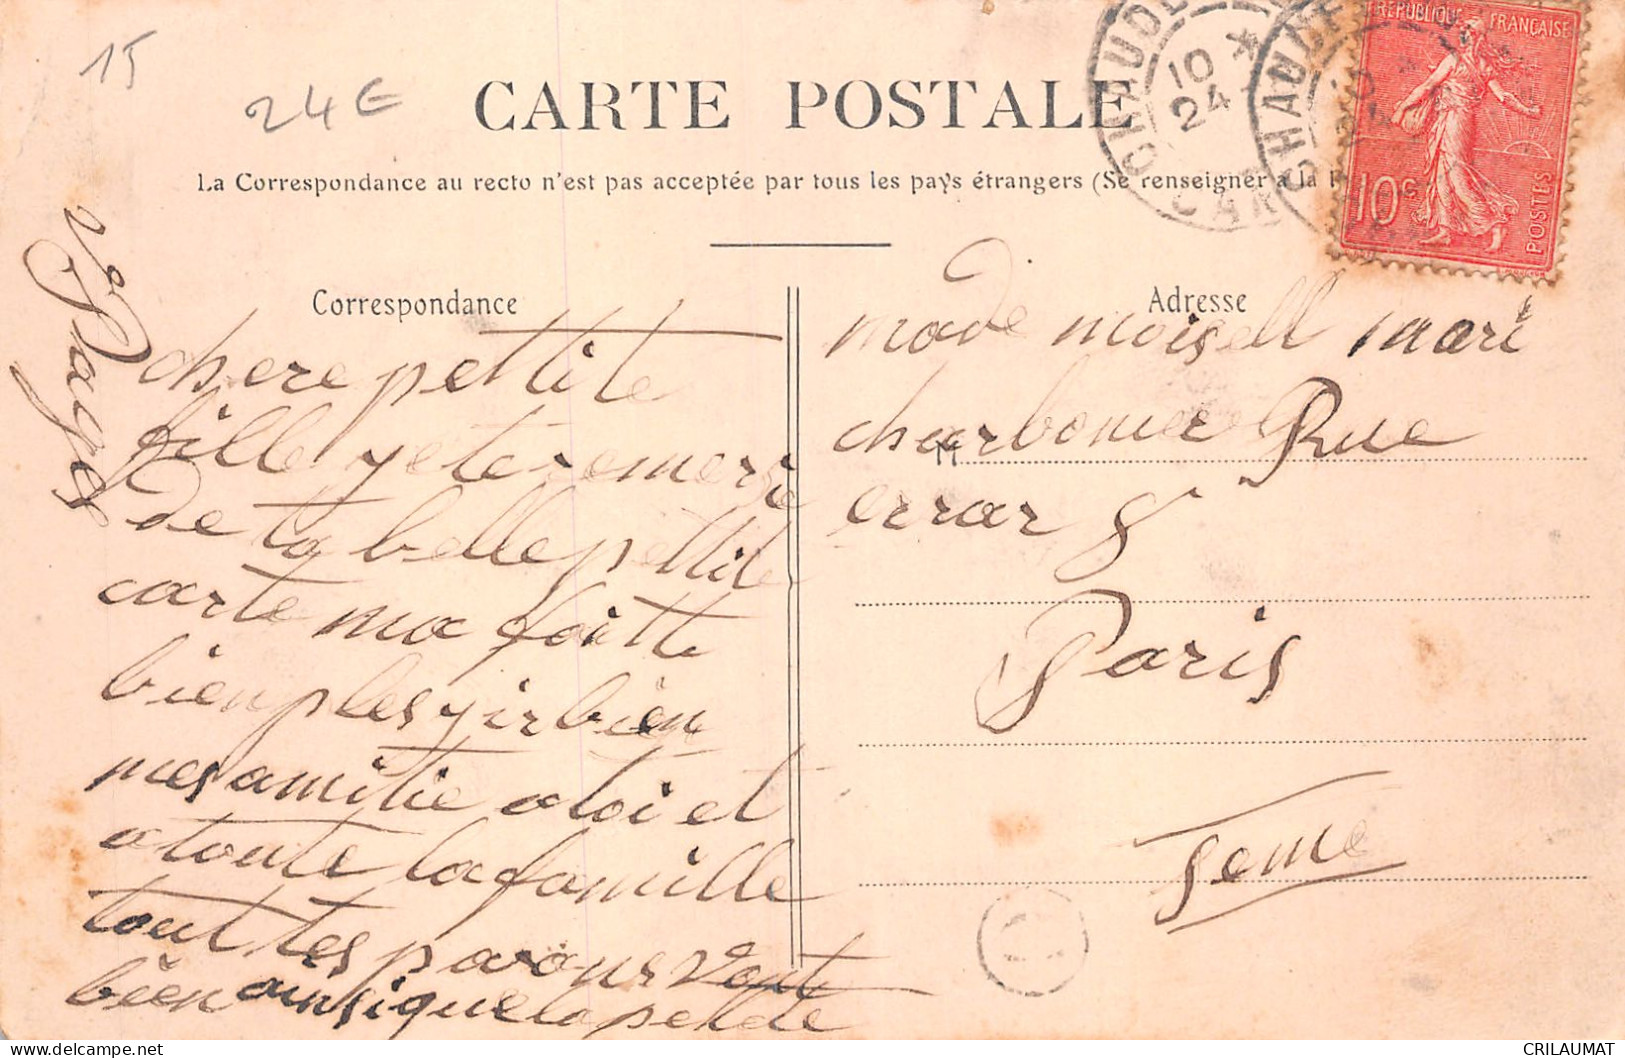 15
24€
CARTE POSTALE
La Correspondance au recto n'est pas acceptée par tous les pays étrangers (Se renseigner à la
CHAUDE
10 *
24
CAN
CHAUDES
RÉPUBLIQUE FRANÇAISE
10c
POSTES
Correspondance
Adresse
vve Pages
chere pettite
fille ye te remerzie
de ta belle pettite
carte ma foitte
bien plesyir bien
mes amitie a toi et
a toute la famille
tout tes parans vont
bien ainsi que la petite
made moisell mari
charbonier Rue
M
errar 8
Paris
5eme
CRILAUMAT